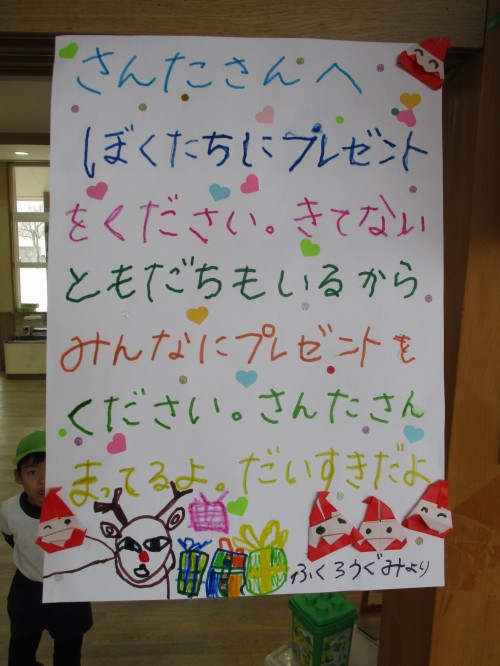 さんたこさんへ
ぼくたちにプレゼント
をください。きてない
ともだちもいるから
みんなにプレゼントを
ください。さんたさん
まってるよ。だいすきだよ
ふくろうぐみより